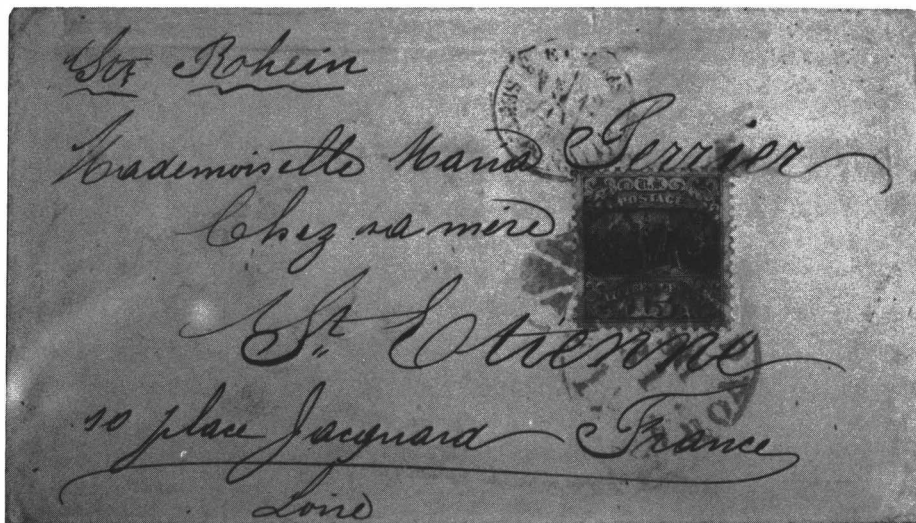 Str Rhein
Mademoiselle Maria Perrier
Chez sa mère
St Etienne
10 place Jacquard France
Loire
POSTAGE
15